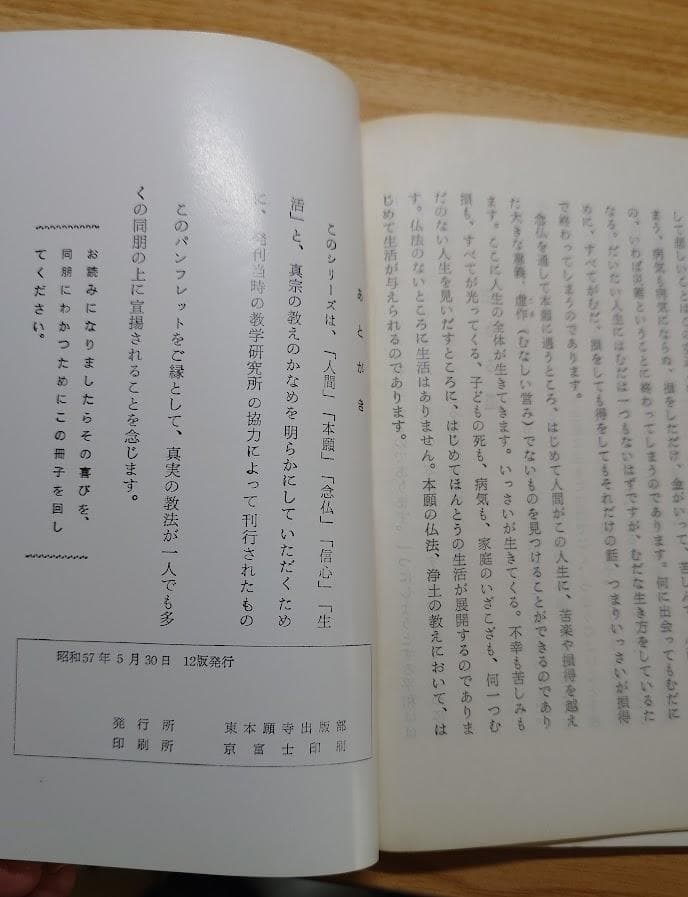 して悲しいことは
まう。病気も病気にならぬ、損をしただけ、金がいって、苦しん
の、いわば災難ということに終わってしまうのであります。何に出会ってもむだに
なる。だいたい人生にはむだは一つもないはずですが、むだな生き方をしているた
めに、すべてがむだ、損をしても得をしてもそれだけの話、つまりいっさいが損得
で終わってしまうのであります。
念仏を通して本願に遇うところ、はじめて人間がこの人生に、苦楽や損得を越え
た大きな意義、虚作（むなしい営み）でないものを見つけることができるのであり
ます。ここに人生の全体が生きてきます。いっさいが生きてくる。不幸も苦しみも
損も、すべてが光ってくる、子どもの死も、病気も、家庭のいざこざも、何一つむ
だのない人生を見いだすところに、はじめてほんとうの生活が展開するのでありま
す。仏法のないところに生活はありません。本願の仏法、浄土の教えにおいて、は
じめて生活が与えられるのであります。
あとがき
このシリーズは、「人間」「本願」「念仏」「信心」「生
活」と、真宗の教えのかなめを明らかにしていただくため
に、発刊当時の教学研究所の協力によって刊行されたもの
このパンフレットをご縁として、真実の教法が一人でも多
くの同朋の上に宣揚されることを念じます。
お読みになりましたらその喜びを、
同朋にわかつためにこの冊子を回し
てください。
昭和57年5月30日 12版発行
発行所 東本願寺出版部
印刷所 京富士印刷